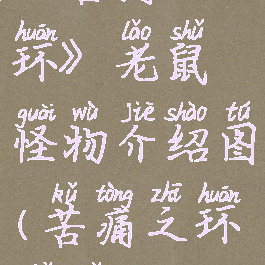 huán lǎo shǔ
环》老鼠
guài wù jiè shào tú
怪物介绍图
kǔ tòng zhī huán
(苦痛之环